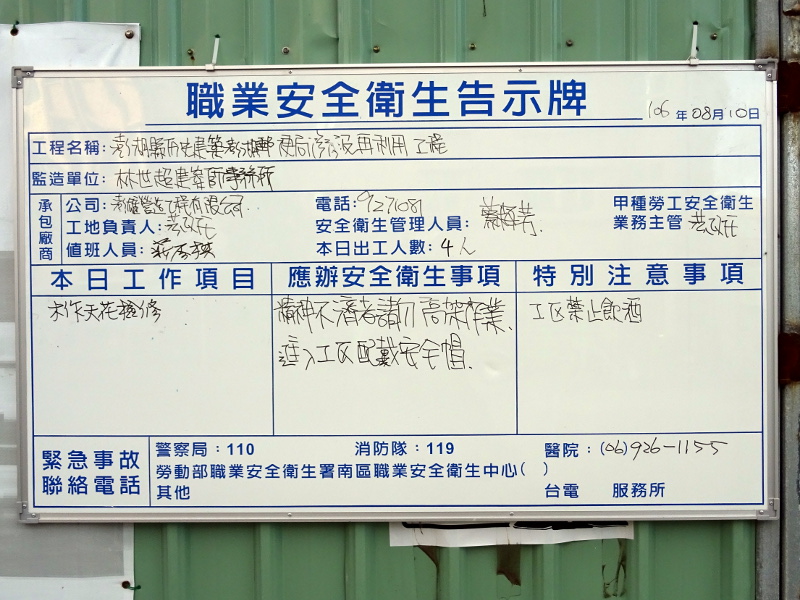 職業安全衛生告示牌
106年08月10日
工程名稱:澎湖縣歷史建築澎湖郵便局修復再利用工程
監造單位:林世超建築師事務所
承包廠商
公司:營造工程有限公司 電話:9271081 甲種勞工安全衛生
工地負責人: 安全衛生管理人員: 業務主管
值班人員: 本日出工人數:4人
本日工作項目 應辦安全衛生事項 特別注意事項
木作天花檢修 精神不濟者請勿高架作業. 工區禁止飲酒
進入工區配戴安全帽.
緊急事故聯絡電話
警察局:110 消防隊:119 醫院:(06)926-1155
勞動部職業安全衛生署南區職業安全衛生中心( )
其他 台電 服務所